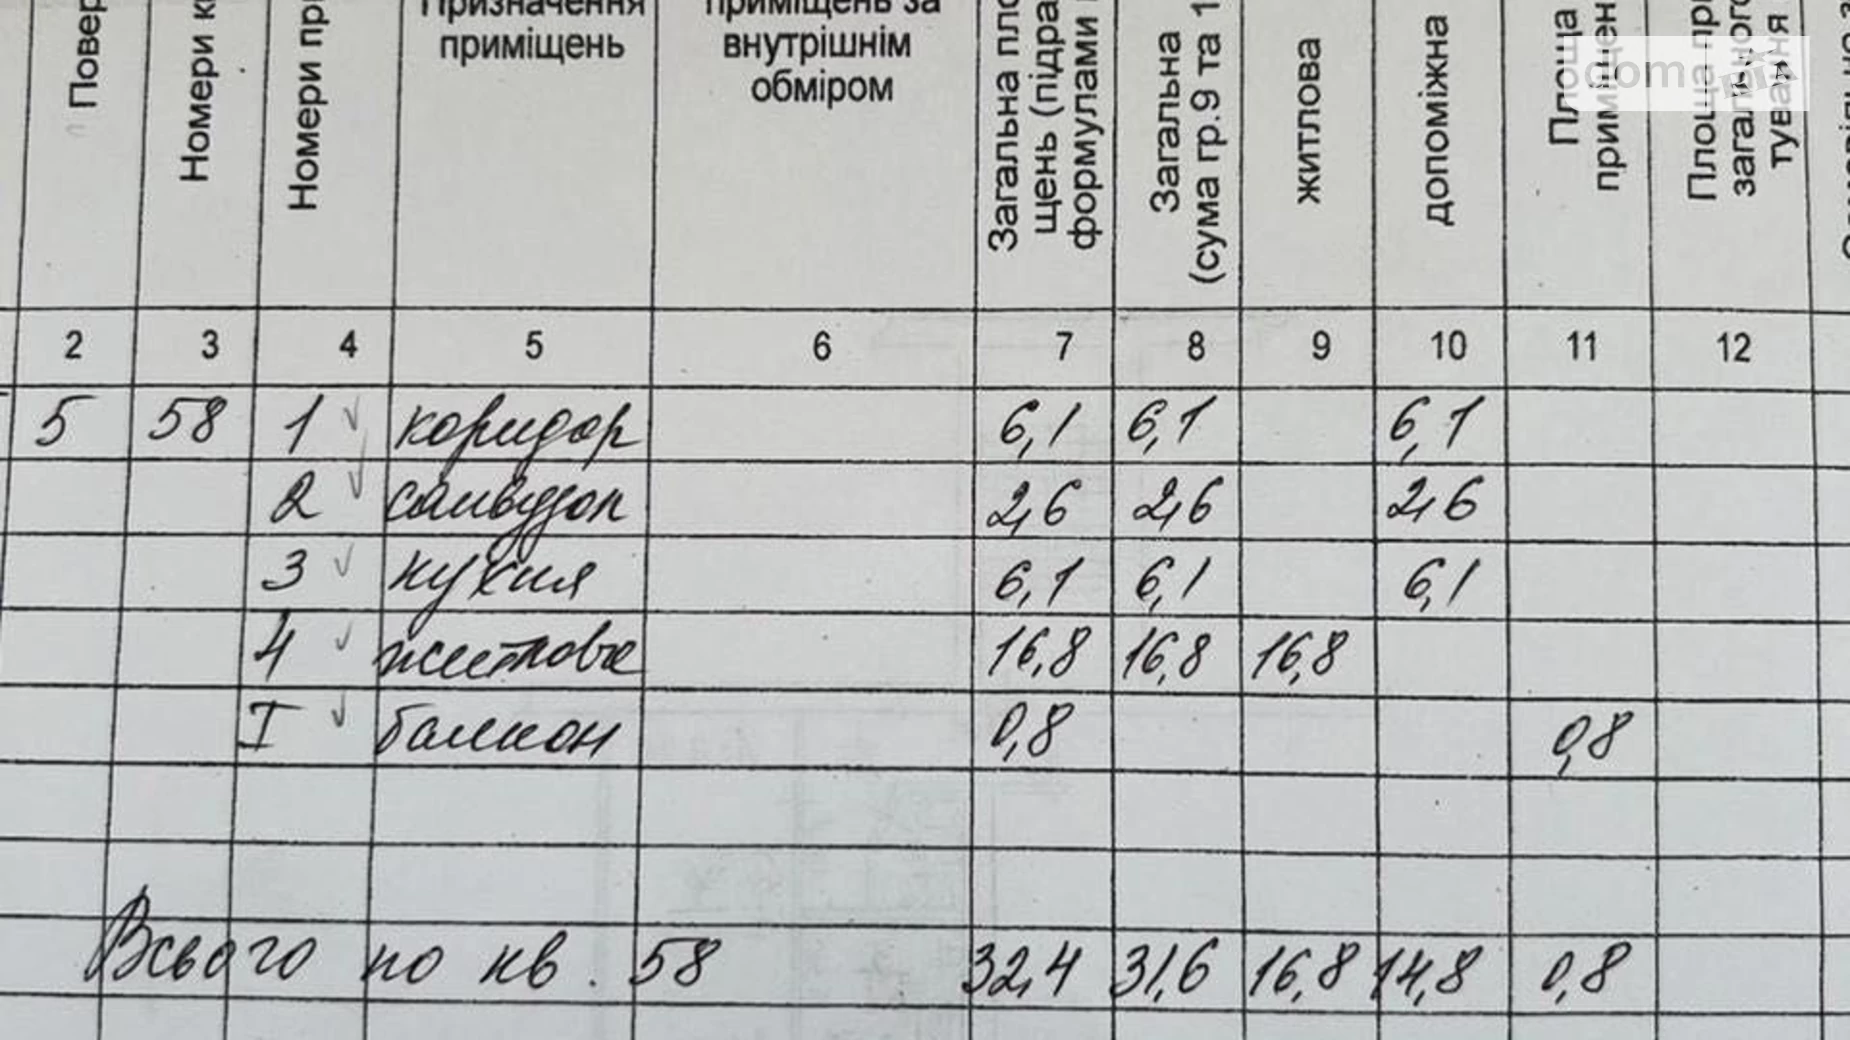 Повер
Номери к
Номери пр
Призначення
приміщень
приміщень за
внутрішнім
обміром
Загальна пло
щень (підра
формулами
Загальна
(сума гр.9 та 1
житлова
допоміжна
Площа
приміщен
Площа пр
загального
тування
doma
2 3 4 5 6 7 8 9 10 11 12
5 58 1 коридор 6,1 6,1 6,1
2 санвузол 2,6 2,6 2,6
3 кухня 6,1 6,1 6,1
4 житлова 16,8 16,8 16,8
I балкон 0,8 0,8
Всього по кв. 58 32,4 31,6 16,8 14,8 0,8